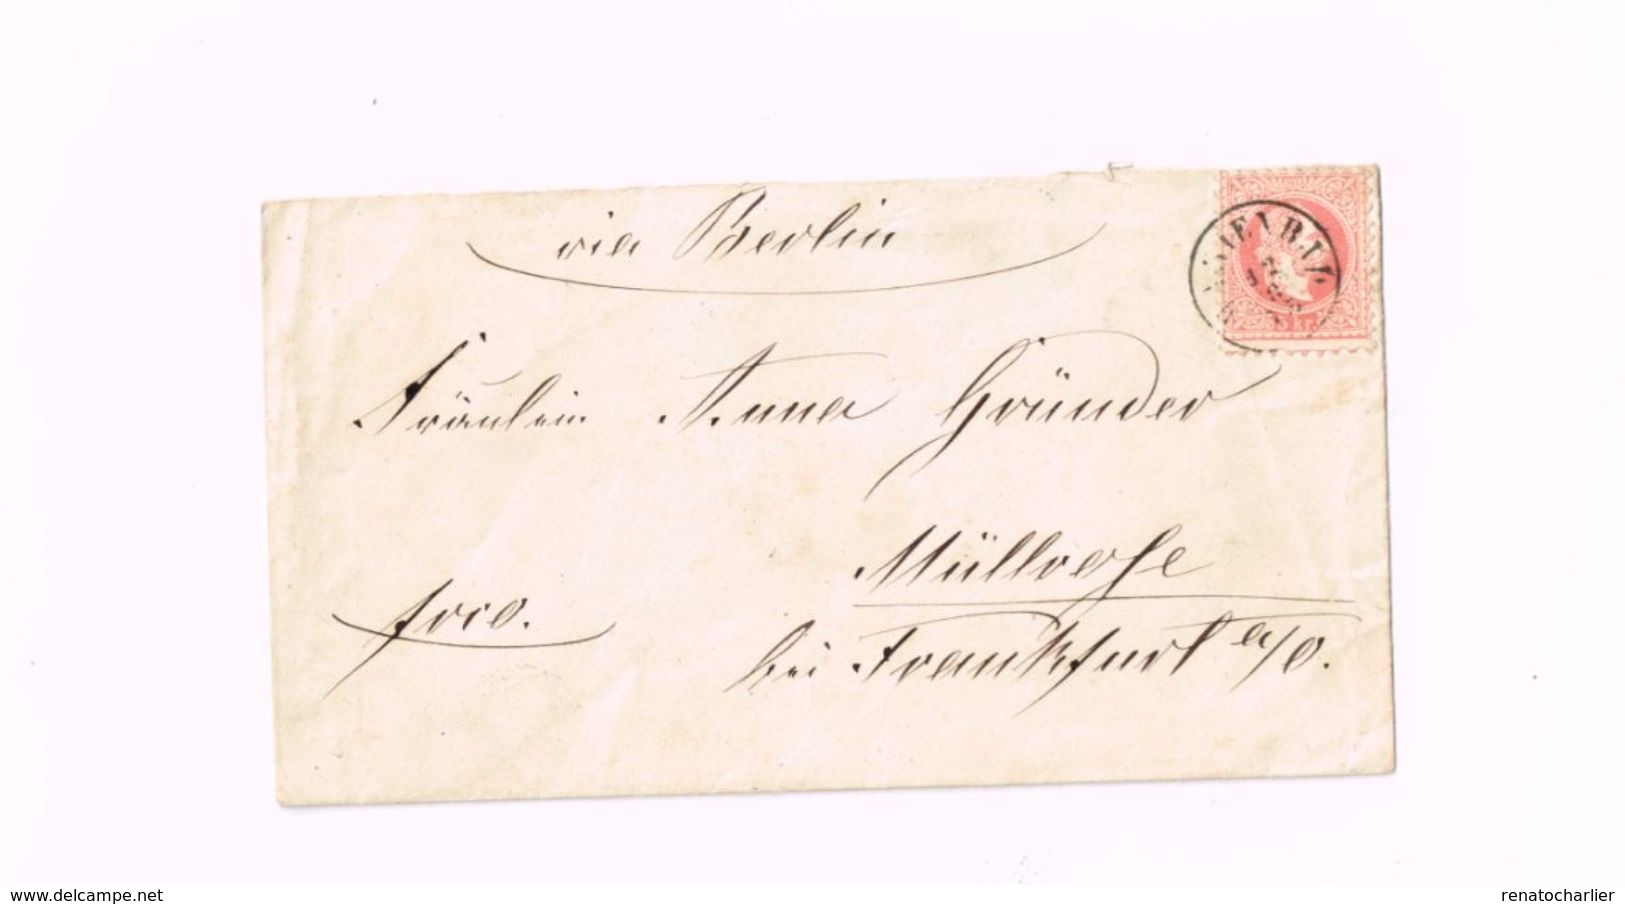 via Berlin
Fräulein Anna Gründer
Müllrose
frco.
bei Frankfurt a/O.
5 kr.
www.delcampe.net
renatocharlier